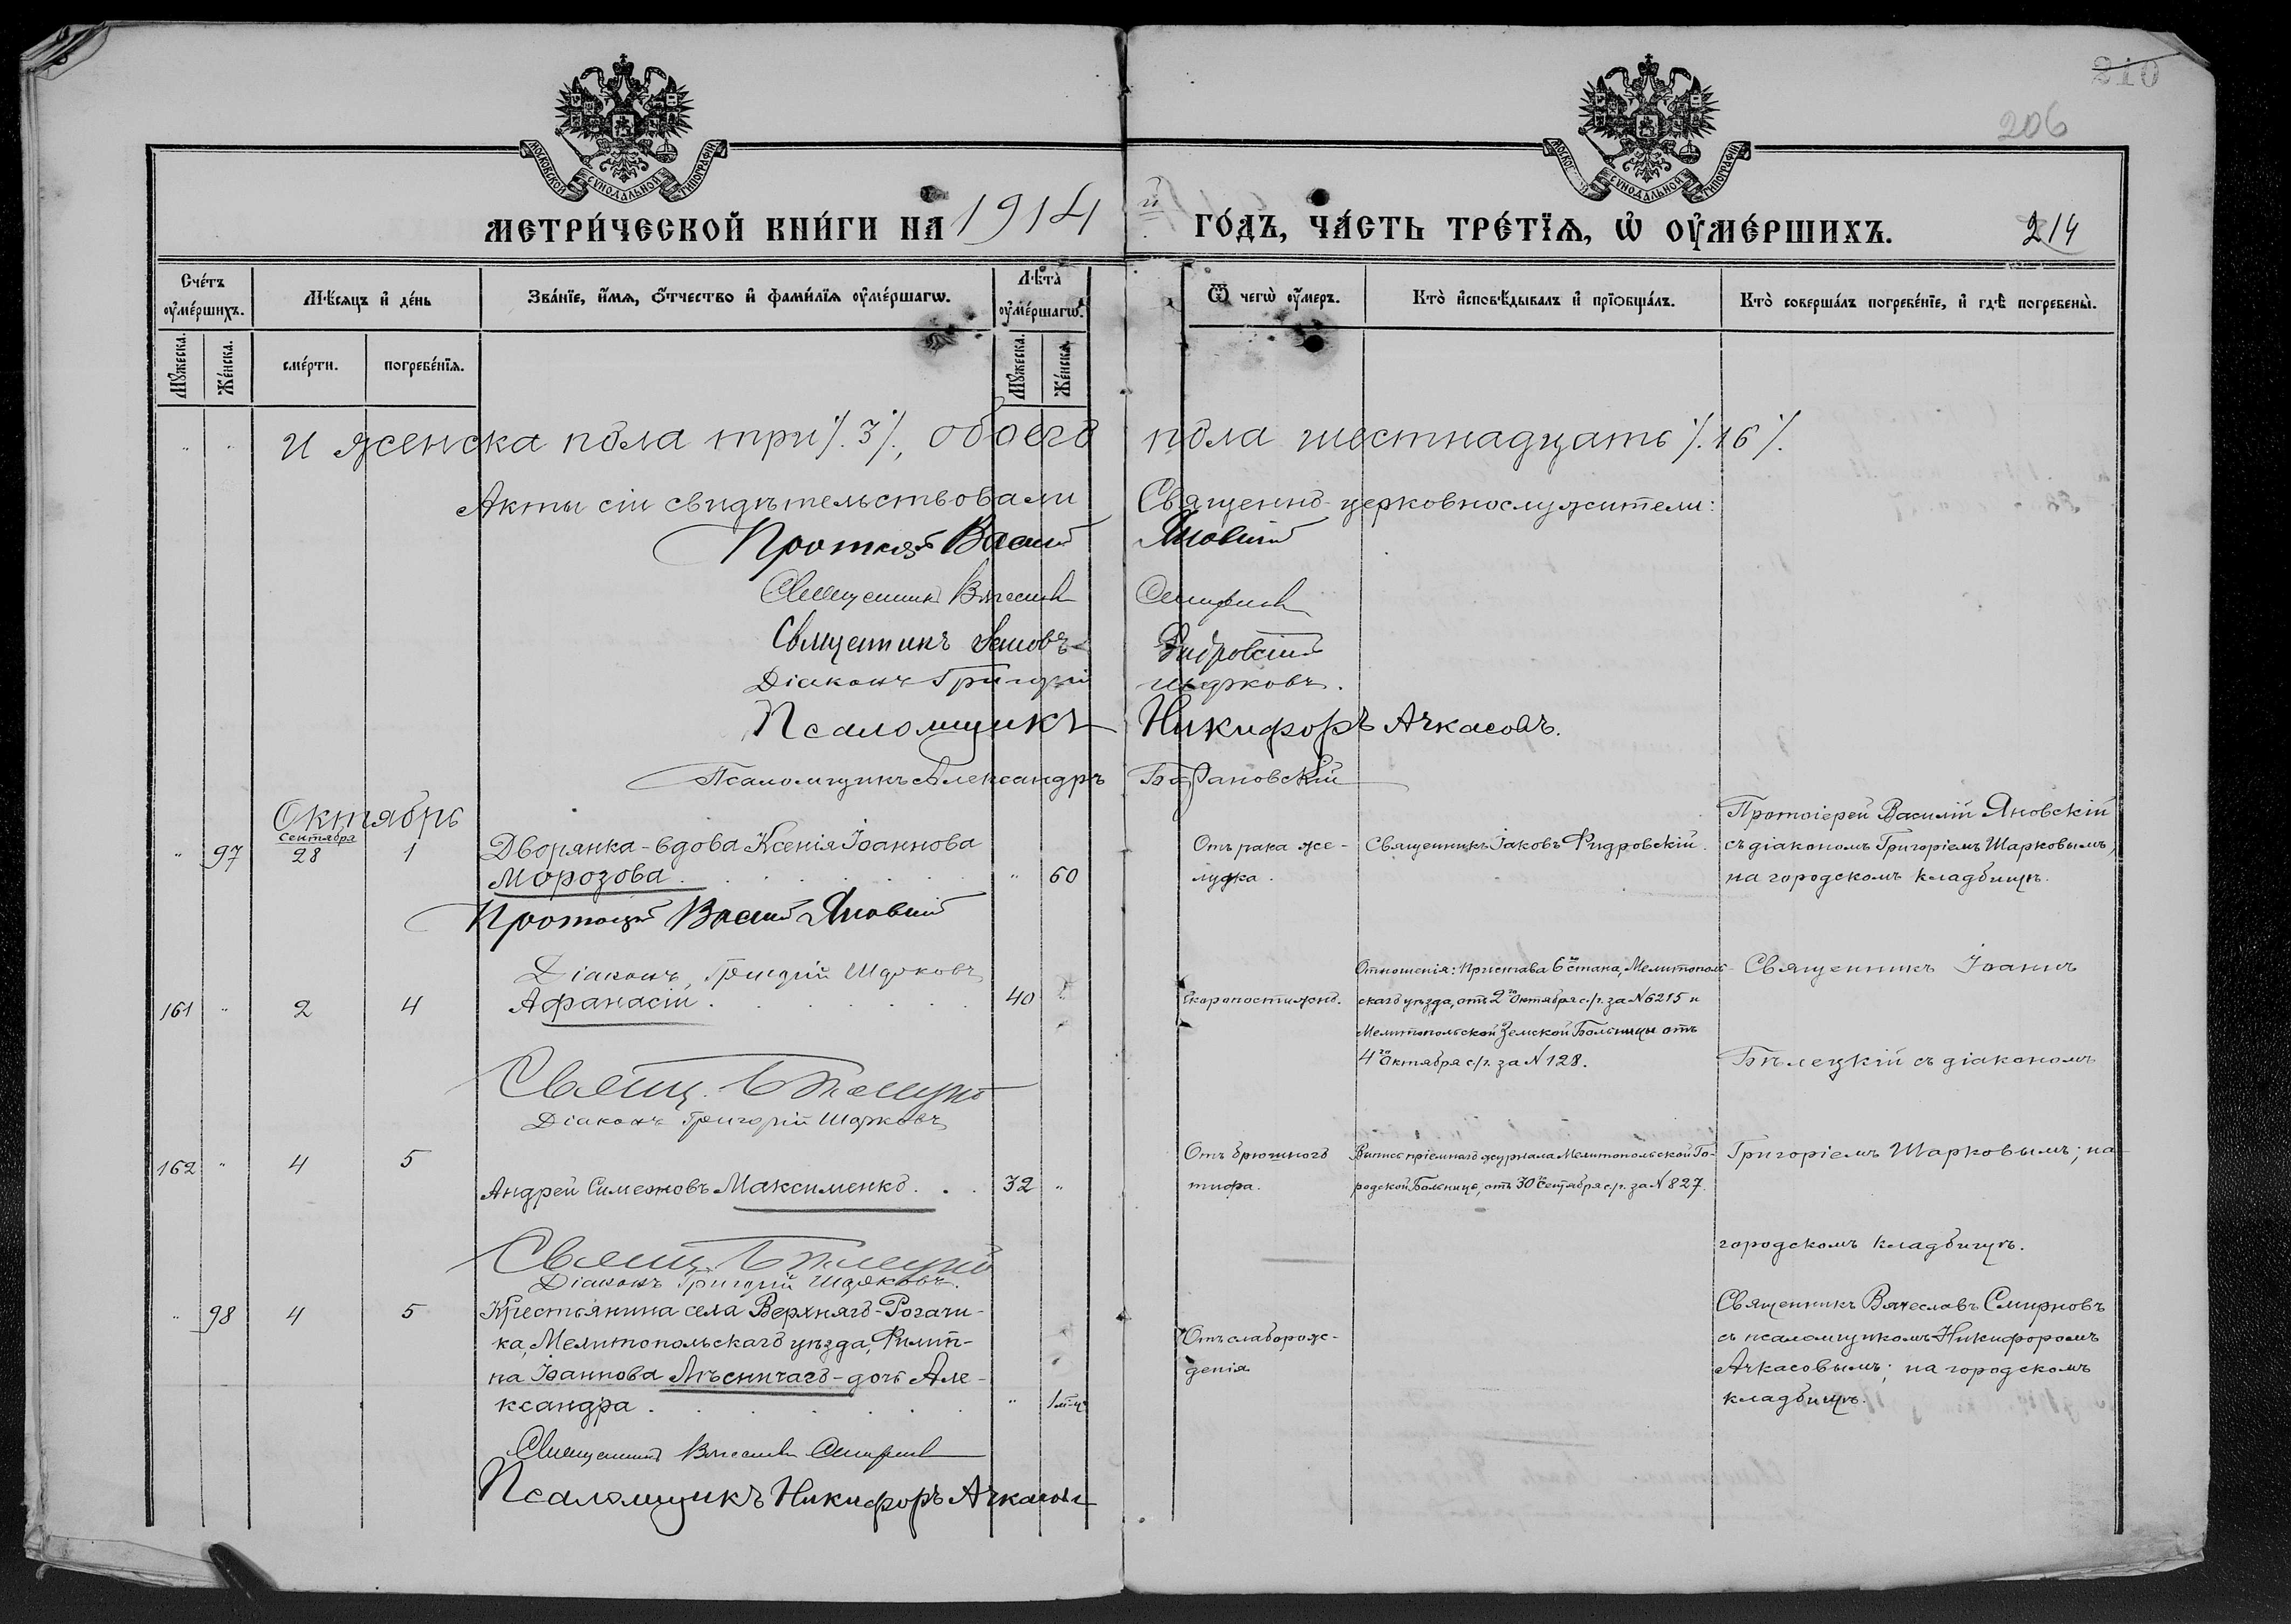 210
206
МОСКОВСКОЙ СѴНОДАЛЬНОЙ ТИПОГРАФІИ
СѴНОДАЛЬНОЙ ТИПОГРАФІИ
МЕТРИ́ЧЕСКОЙ КНИ́ГИ НА 1914 й ГО́ДЪ, ЧА́СТЬ ТРЕ́ТІѦ, Ѡ ОУ҆МЕ́РШИХЪ. 214
Сче́тъ оу҆ме́ршихъ.
Мѣ́сяцъ и҆ де́нь
Зва́нїе, и҆́мя, ѻ҆́тчество и҆ фами́лїя оу҆ме́ршагѡ.
Лѣ́та оу҆ме́ршагѡ.
Ѿ чегѡ̀ оу҆́меръ.
Кто̀ и҆сповѣ́дывалъ и҆ прїѡбща́лъ.
Кто̀ соверша́лъ погребе́нїе, и҆ гдѣ̀ погребены̀.
Мꙋ́жеска.
Же́нска.
сме́рти.
погребе́нїя.
Мꙋ́жеска.
Же́нска.
" " и женска пола три /.3/., обоего пола шестнадцать /.16/.
Акты сіи свидѣтельствовали Священно-церковнослужители:
Протоіерей Василій Яновскій
Священникъ Вячеславъ Смирновъ
Священникъ Іаковъ Фидровскій
Діаконъ Григорій Шарковъ.
Псаломщикъ Никифоръ Ачкасовъ.
Псаломщикъ Александръ Барановскій
Октябрь
" 97 Сентября 28 1 Дворянка-вдова Ксенія Іоаннова
Морозова " 60
Отъ рака же-
лудка.
Священникъ Іаковъ Фидровскій.
Протоіерей Василій Яновскій
съ діакономъ Григоріемъ Шарковымъ,
на городскомъ кладбищѣ.
Протоіерей Василій Яновскій
Діаконъ Григорій Шарковъ
161 " 2 4 Афанасій 40 "
Скоропостижно.
Отношенія: Пристава 6го стана, Мелитополь-
скаго уѣзда, отъ 2го Октября с/г. за N 6215 и
Мелитопольской Земской Больницы отъ
4го Октября с/г. за N 128.
Священникъ Іоаннъ
Бѣлецкій съ діакономъ
Свящ. І. Бѣлецкій
Діаконъ Григорій Шарковъ
162 " 4 5
Андрей Симеоновъ Максименко. 32 "
Отъ брюшного
тифа.
Выпись пріемнаго журнала Мелитопольской Го-
родской Больницы, отъ 30го Сентября с/г. за N 827.
Григоріемъ Шарковымъ; на
городскомъ кладбищѣ.
Свящ. І. Бѣлецкій
Діаконъ Григорій Шарковъ.
" 98 4 5 Крестьянина села Верхняго-Рогачи-
ка, Мелитопольскаго уѣзда, Филип-
па Іоаннова Лѣсничаго - дочь Але-
ксандра " 1 м-ц
Отъ слаборож-
денія
Священникъ Вячеславъ Смирновъ
съ псаломщикомъ Никифоромъ
Ачкасовымъ; на городскомъ
кладбищѣ.
Священникъ Вячеславъ Смирновъ
Псаломщикъ Никифоръ Ачкасовъ